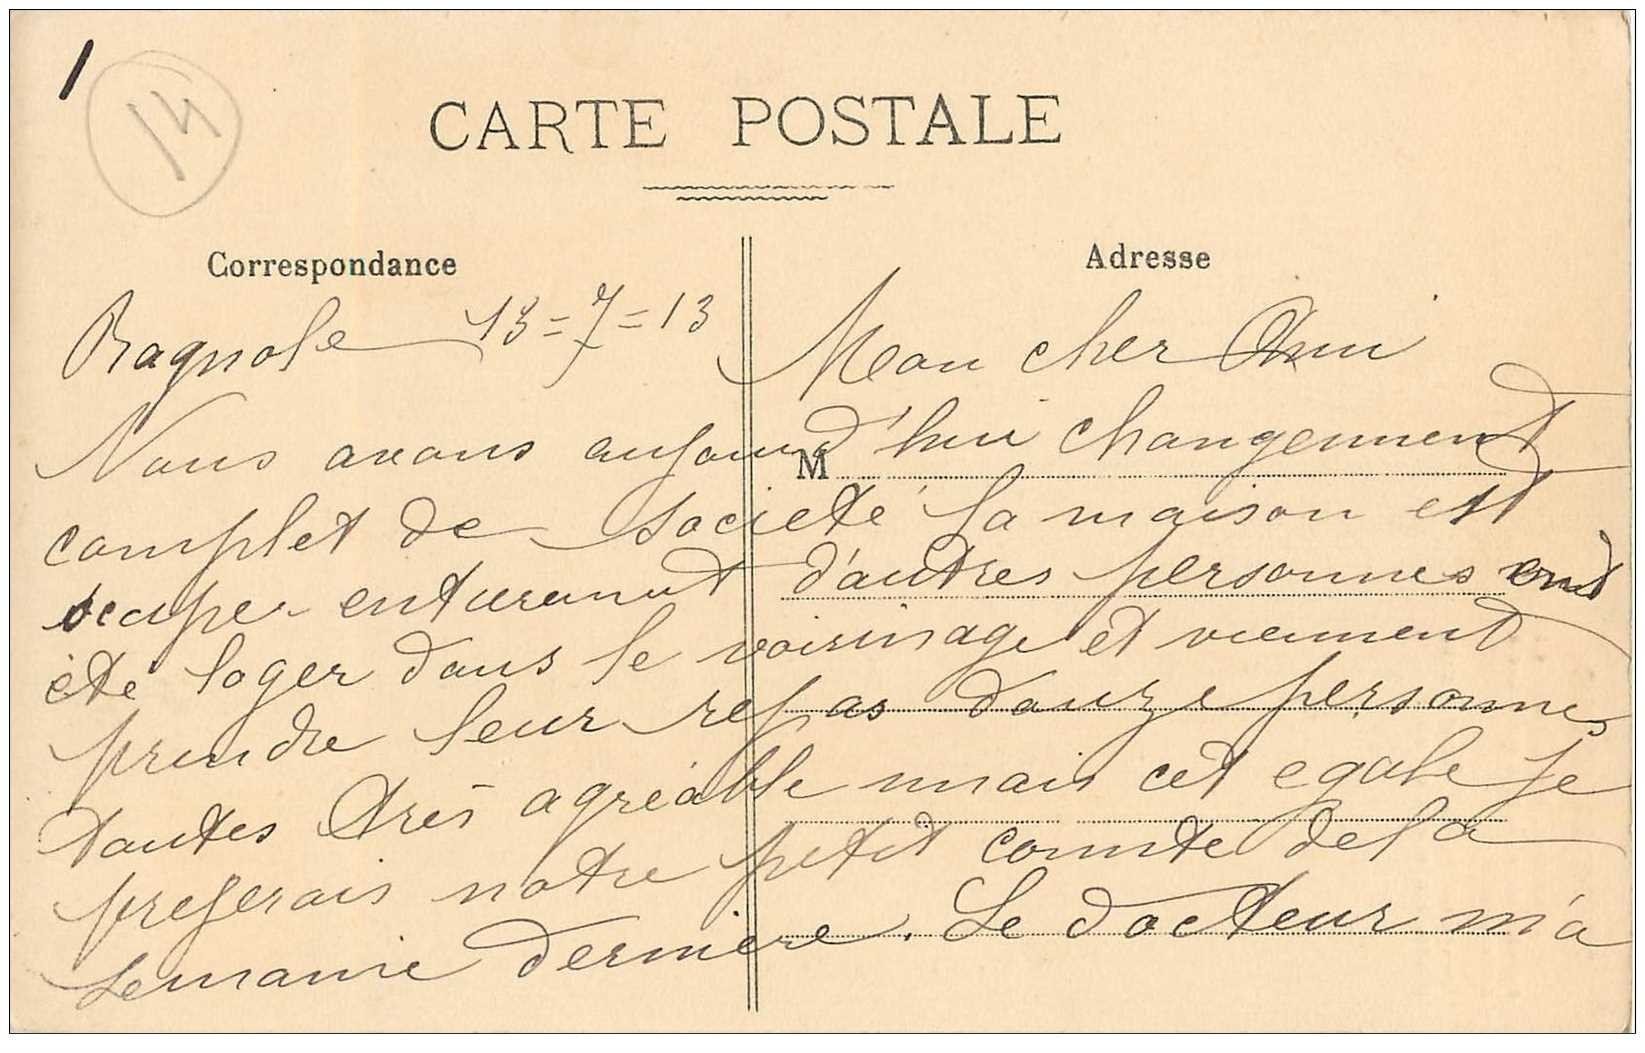 1
14
CARTE POSTALE
Correspondance
Adresse
Bagnole 13=7=13 Mon cher Ami
M
Nous avons aujourd'hui changement
complet de societé la maison est
ocuper entierement d'autres personnes ont
été loger dans le voisinage et viennent
prendre leur repas douze personnes
toutes très agréable mais cet egale je
preferais notre petit comite de la
semaine derniere. Le docteur m'a